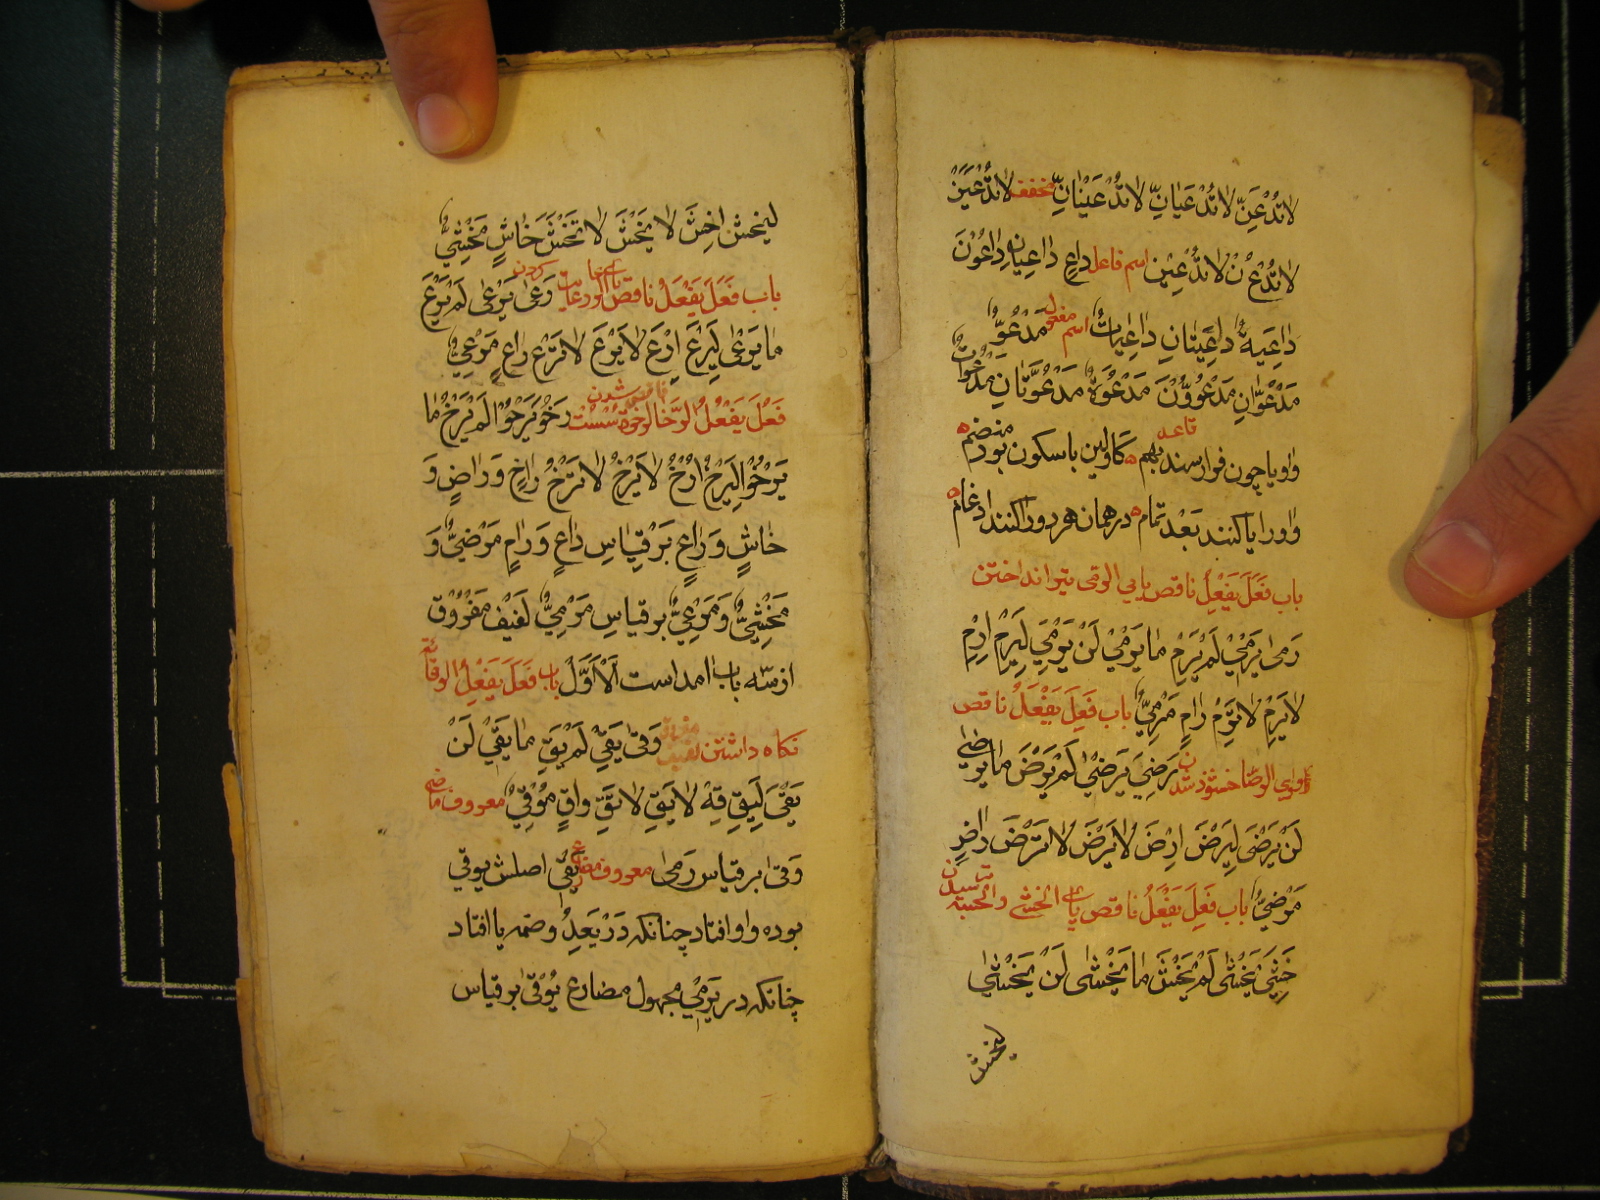 لَاتُدْعَيِنَّ لَاتُدْعَيَانِّ لَاتُدْعَيْنَانِّ مخففه لَاتُدْعَيَنْ
لَاتُدْعَوُنْ لَاتُدْعَيِنْ اسم فاعل دَاعٍ دَاعِيَانِ دَاعُوْنَ
دَاعِيَةٌ دَاعِيَتَانِ دَاعِيَاتٌ اسم مفعول مَدْعُوٌّ
مَدْعُوَّانِ مَدْعُوُّوْنَ مَدْعُوَّةٌ مَدْعُوَّتَانِ مَدْعُوَّاتٌ
قاعه
واو یا چون فرارسند بهم ه کاولین باسکون بود منضم ه
واو را یا کنند بعد تمام ه در همان هر دو را کنند ادغام ه
باب فَعَلَ يَفْعِلُ ناقص یایی الرمی تیر انداختن
رَمٰى يَرْمِيْ لَمْ يَرْمِ مَا يَرْمِيْ لَنْ يَرْمِيَ لِيَرْمِ اِرْمِ
لَايَرْمِ لَاتَرْمِ رَامٍ مَرْمِيٌّ باب فَعِلَ يَفْعَلُ ناقص
واوی الرضا خشنود شدن رَضِيَ يَرْضٰى لَمْ يَرْضَ مَا يَرْضٰى
لَنْ يَرْضٰى لِيَرْضَ اِرْضَ لَايَرْضَ لَاتَرْضَ رَاضٍ
مَرْضِيٌّ باب فَعِلَ يَفْعَلُ ناقص یای الخشی والخشیة ترسیدن
خَشِيَ يَخْشٰى لَمْ يَخْشَ مَا يَخْشٰى لَنْ يَخْشٰى
لیخش
لِيَخْشَ اِخْشَ لَايَخْشَ لَاتَخْشَ خَاشٍ مَخْشِيٌّ
باب فَعَلَ يَفْعَلُ ناقص یای رعایت کردن رَعٰى يَرْعٰى لَمْ يَرْعَ
مَا يَرْعٰى لِيَرْعَ اِرْعَ لَايَرْعَ لَاتَرْعَ رَاعٍ مَرْعِيٌّ
فَعُلَ يَفْعُلُ الرخا الرخوة سست شدن رَخُوَ يَرْخُوْ لَمْ يَرْخُ مَا
يَرْخُوْ لِيَرْخُ اُرْخُ لَايَرْخُ لَاتَرْخُ رَاخٍ وَرَاضٍ وَ
خَاشٍ وَرَاعٍ بَرْقِيَاسِ دَاعٍ وَرَامٍ مَرْضِيٌّ وَ
مَخْشِيٌّ وَمَرْعِيٌّ بر قياسِ مَرْمِيٌّ لفيف مَفْرُوْق
از سه باب امده است اَلْاَوَّلُ باب فَعَلَ يَفْعِلُ الوقاية
نکاه داشتن لفیف مفروق وَقٰى يَقِيْ لَمْ يَقِ مَا يَقِيْ لَنْ
يَقِيَ لِيَقِ قِهْ لَايَقِ لَاتَقِ وَاقٍ مَوْقِيٌّ معروف ماضی
وَقٰى بر قیاس رَمٰى معروف مضارع يَقِيْ اصلش یوقی
بوده واو افتاد چنانکه دَرْ يَعِدُ وضمه یا افتاد
چنانکه در يَرْمِيْ مجهول مضارع يُوْقٰى بر قیاس